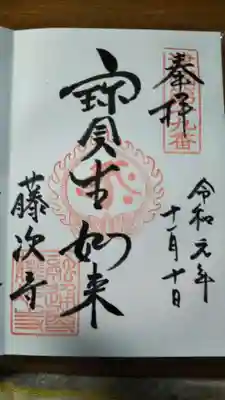 奉拝
令和元年
十一月十日
寳生如来
藤次寺